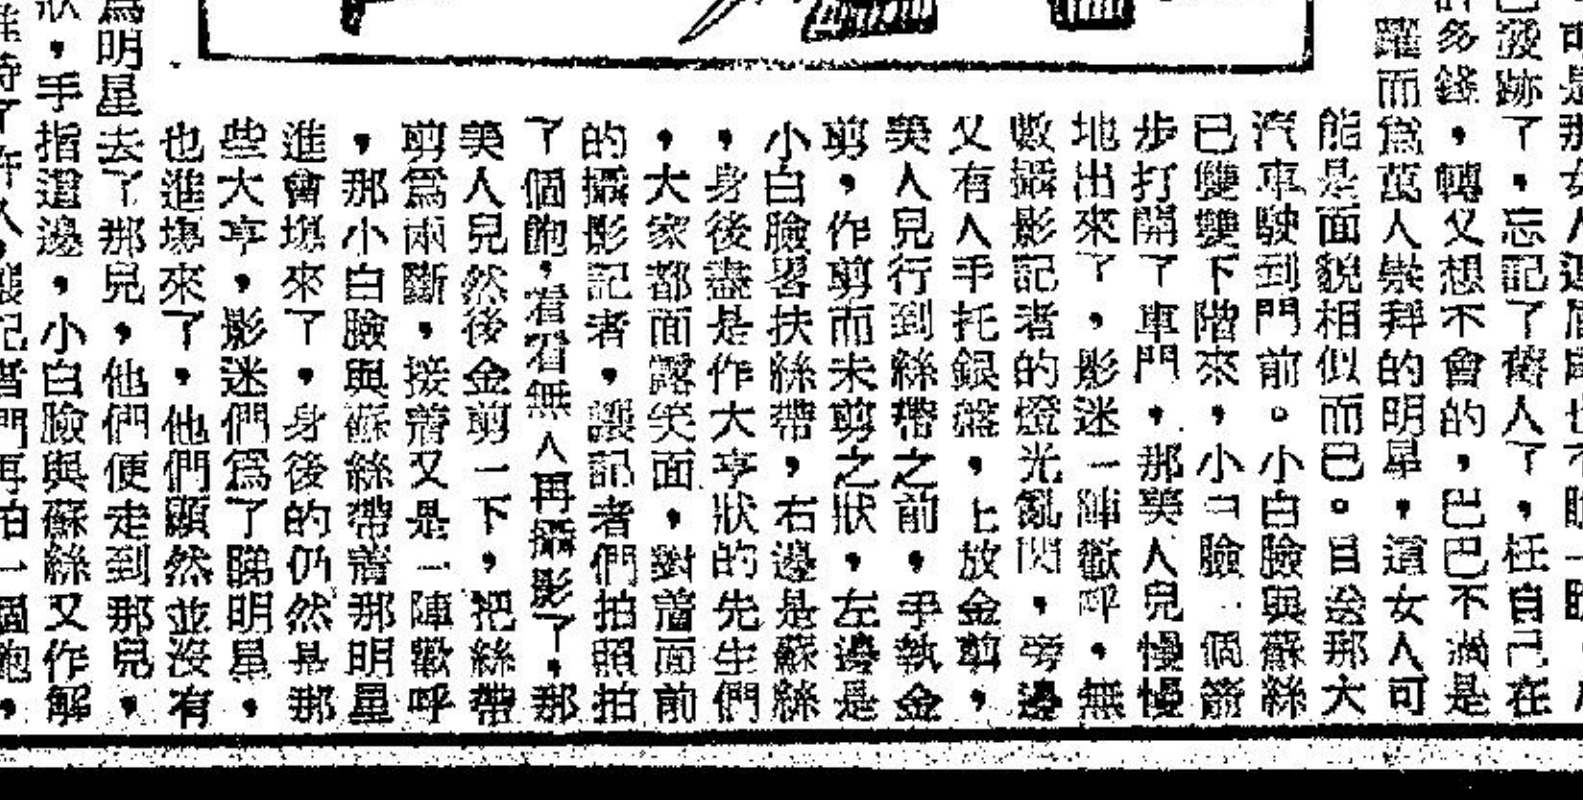 可是那女人也不瞧一瞧，
已發跡了，忘記了舊人了，枉自己在
許多錢，轉又想不會的，巴巴不過是
躍而爲萬人崇拜的明星，這女人可
能是面貌相似而已。目送那大
汽車駛到門前。小白臉與蘇絲
已雙雙下階來，小白臉一個箭
步打開了車門，那美人兒慢慢
地出來了，影迷一陣歡呼，無
數攝影記者的燈光亂閃，旁邊
又有人手托銀盤，上放金剪，
美人兒行到絲帶之前，手執金
剪，作剪而未剪之狀，左邊是
小白臉畧扶絲帶，右邊是蘇絲
，身後盡是作大亨狀的先生們
，大家都面露笑面，對着面前
的攝影記者，讓記者們拍照拍
了個飽，看看無人再攝影了，那
美人兒然後金剪一下，把絲帶
剪爲兩斷，接着又是一陣歡呼
，那小白臉與蘇絲帶着那明星
進會塲來了，身後的仍然是那
些大亨，影迷們爲了睇明星，
也進塲來了，他們顯然並沒有
爲明星去了那兒，他們便走到那兒，
狀，手指這邊，小白臉與蘇絲又作解
持了許久，讓記者們再拍一個飽，